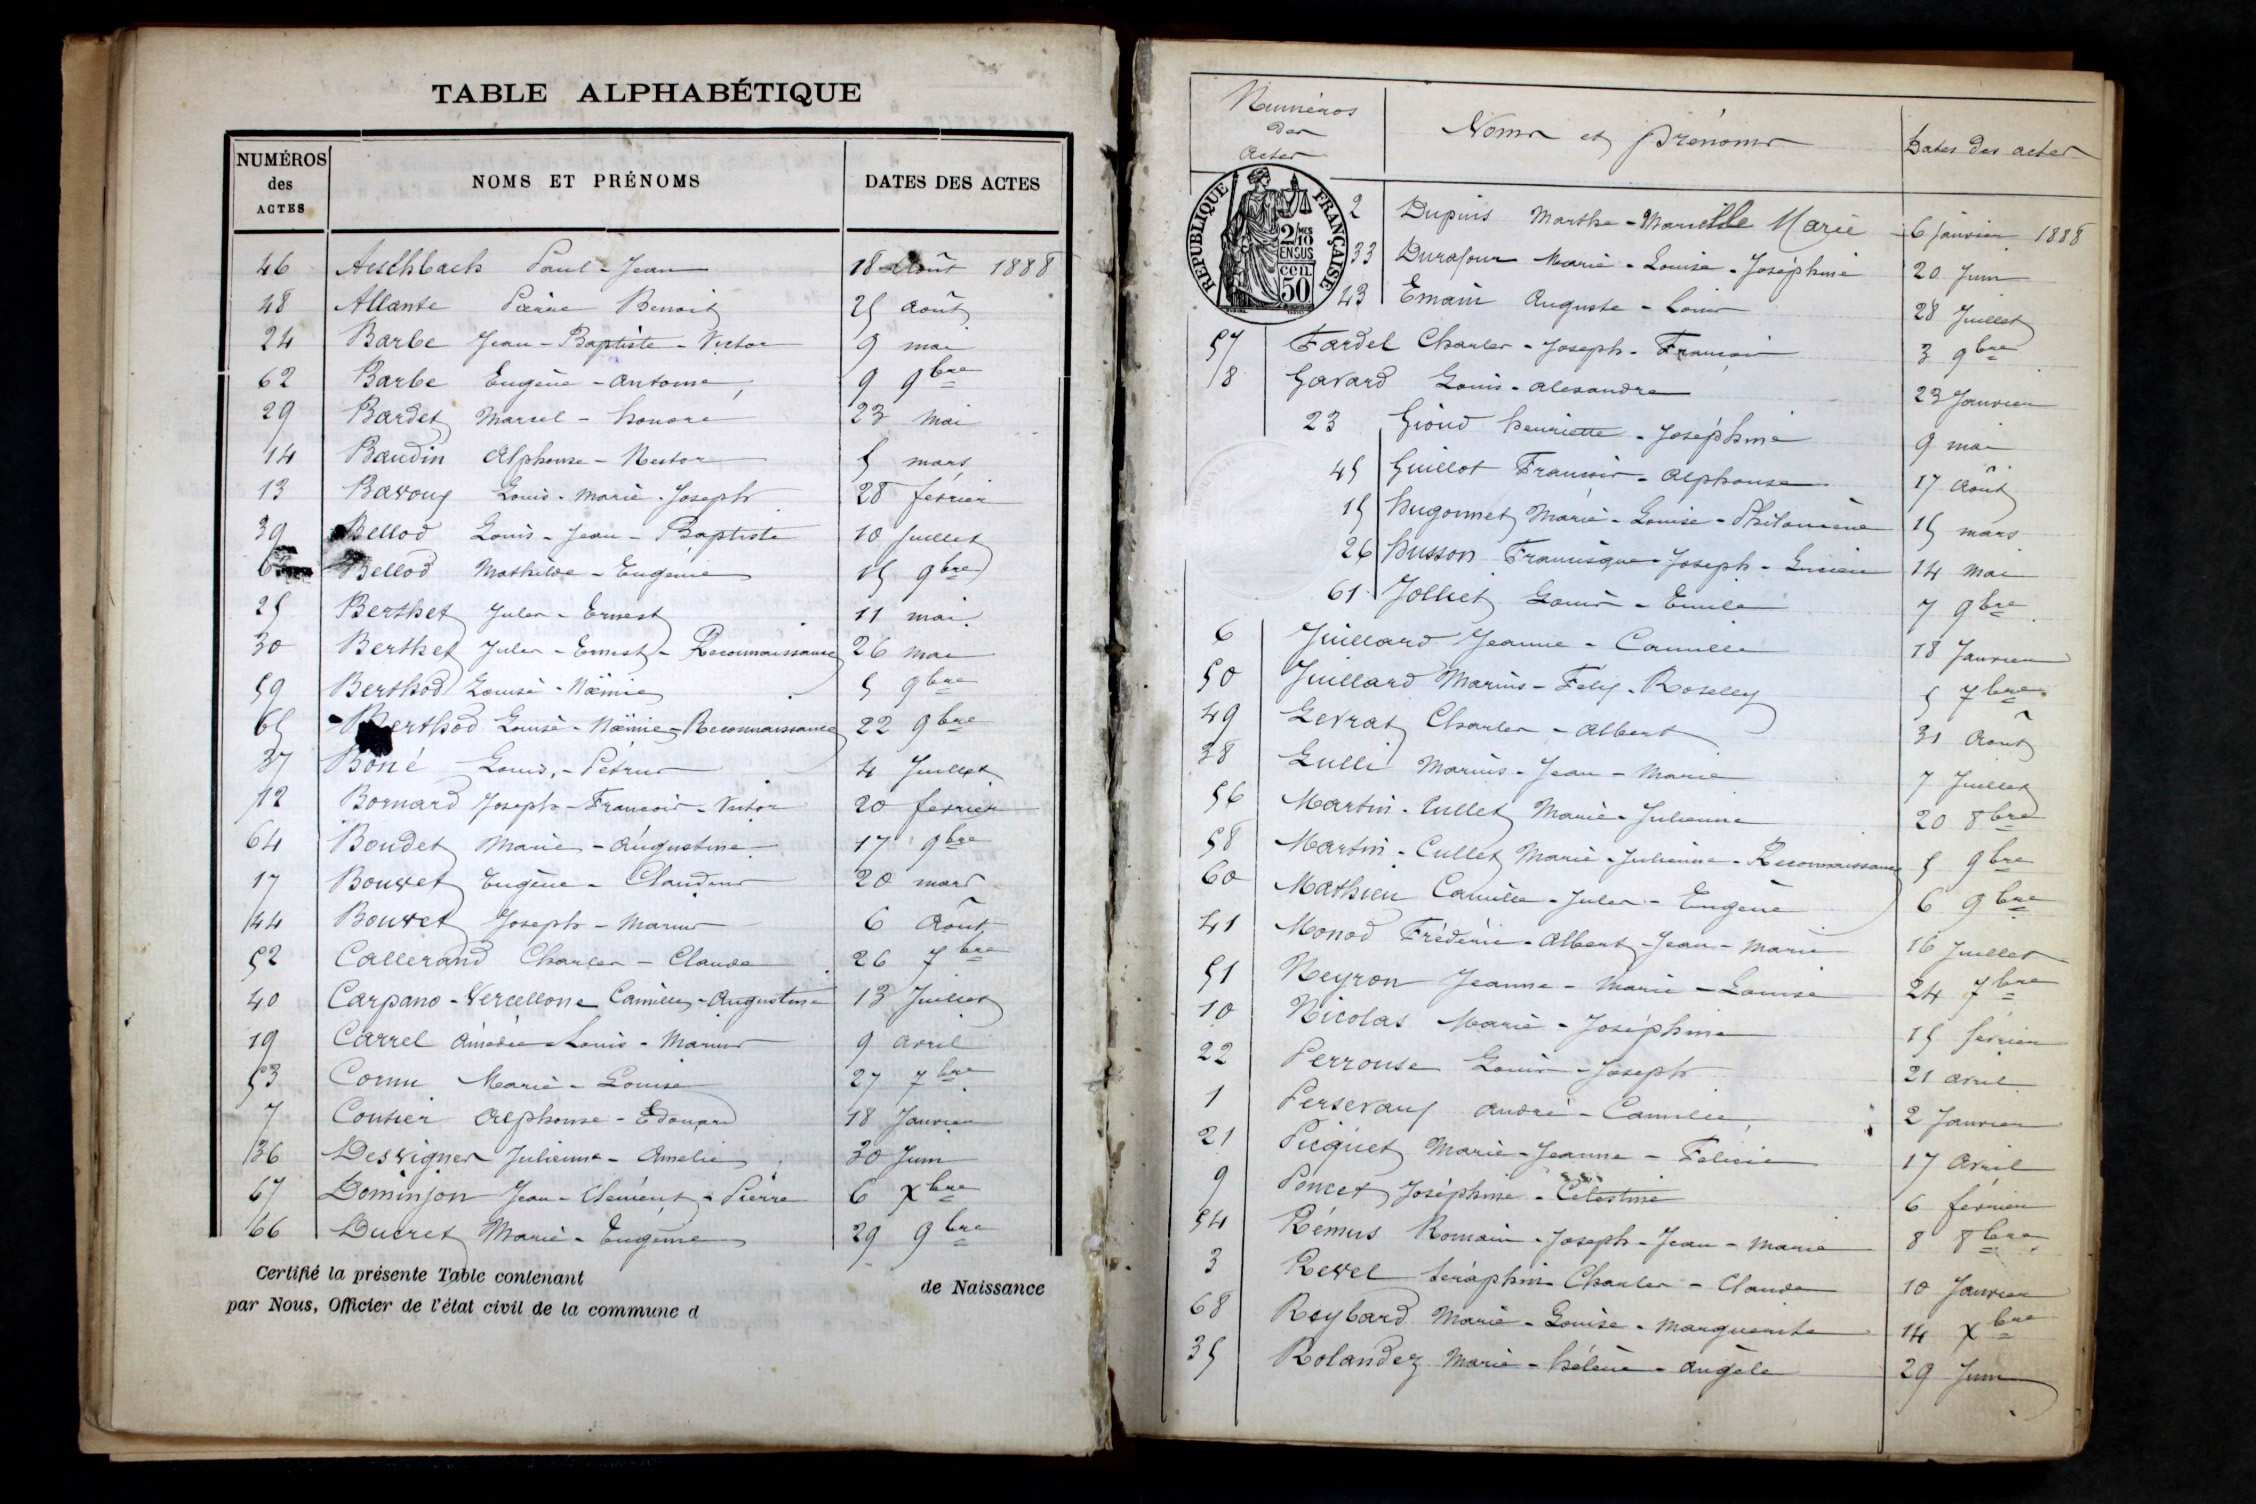 TABLE ALPHABÉTIQUE
NUMÉROS des ACTES NOMS ET PRÉNOMS DATES DES ACTES
46 Aeschbach Paul - Jean 18 Août 1888
48 Allante Pierre Benoit 25 Août
24 Barbe Jean - Baptiste - Victor 9 mai
62 Barbe Eugène - Antoine 9 9bre
29 Bardet Marcel - honoré 23 mai
14 Baudin Alphonse - Nestor 5 mars
13 Bavoux Louis - Marie - Joseph 28 février
39 Bellod Louis - Jean - Baptiste 10 Juillet
Bellod Mathilde - Eugénie 15 9bre
25 Berthet Jules - Ernest 11 mai
30 Berthet Jules - Ernest - Reconnaissance 26 mai
59 Berthod Louise - Noëmie 5 9bre
65 Berthod Louise - Noëmie - Reconnaissance 22 9bre
37 Boné Louis - Pétrus 4 Juillet
12 Bornard Joseph - François - Victor 20 février
64 Boudet Marie - Augustine 17 9bre
17 Bouvet Eugène - Claudius 20 mars
44 Bouvet Joseph - Marius 6 Août
52 Callerand Charles - Claude 26 7bre
40 Carpano - Vercellone Camille - Augustine 13 Juillet
19 Carrel Amédée - Louis - Marius 9 avril
53 Cornu Marie - Louise 27 7bre
7 Coutier Alphonse - Edouard 18 Janvier
36 Desvignes Julienne - Amélie 30 Juin
67 Dominjon Jean - Clément - Pierre 6 Xbre
66 Ducret Marie - Eugénie 29 9bre
Certifié la présente Table contenant de Naissance
par Nous, Officier de l'état civil de la commune d
Numéros des Actes Noms et prénoms Dates des actes
RÉPUBLIQUE FRANÇAISE
2/10 MES EN SUS
50 cen
2 Dupuis Marthe - Marcelle Marie 6 janvier 1888
33 Durafour Marie - Louise - Joséphine 20 Juin
43 Emain Auguste - Louis 28 Juillet
57 Fardel Charles - Joseph - François 3 9bre
8 Gavard Louis - Alexandre 23 Janvier
23 Gioud henriette - Joséphine 9 mai
45 Guillot François - Alphonse 17 Août
15 hugonnet Marie - Louise - Philomène 15 mars
26 husson Francisque - Joseph - Lucien 14 mai
61 Jolliet Louis - Emile 7 9bre
6 Juillard Jeanne - Camille 18 Janvier
50 Juillard Marius - Félix - Roselly 5 7bre
49 Levrat Charles - Albert 31 Août
38 Lulli Marius - Jean - Marie 7 Juillet
56 Martin - Cullet Marie - Julienne 20 8bre
58 Martin - Cullet Marie - Julienne - Reconnaissance 5 9bre
60 Mathieu Camille - Jules - Eugène 6 9bre
41 Monod Frédéric - Albert - Jean - Marie 16 Juillet
51 Neyron Jeanne - Marie - Louise 24 7bre
10 Nicolas Marie - Joséphine 15 février
22 Perrouse Louis - Joseph 21 avril
1 Persevaux André - Camille 2 Janvier
21 Picquet Marie - Jeanne - Félicie 17 Avril
9 Poncet Joséphine - Célestine 6 février
54 Rémus Romain - Joseph - Jean - Marie 8 8bre
3 Revel Séraphin Charles - Claude 10 Janvier
68 Reybard Marie - Louise - Marguerite 14 Xbre
35 Rolandez Marie - hélène - Angèle 29 Juin